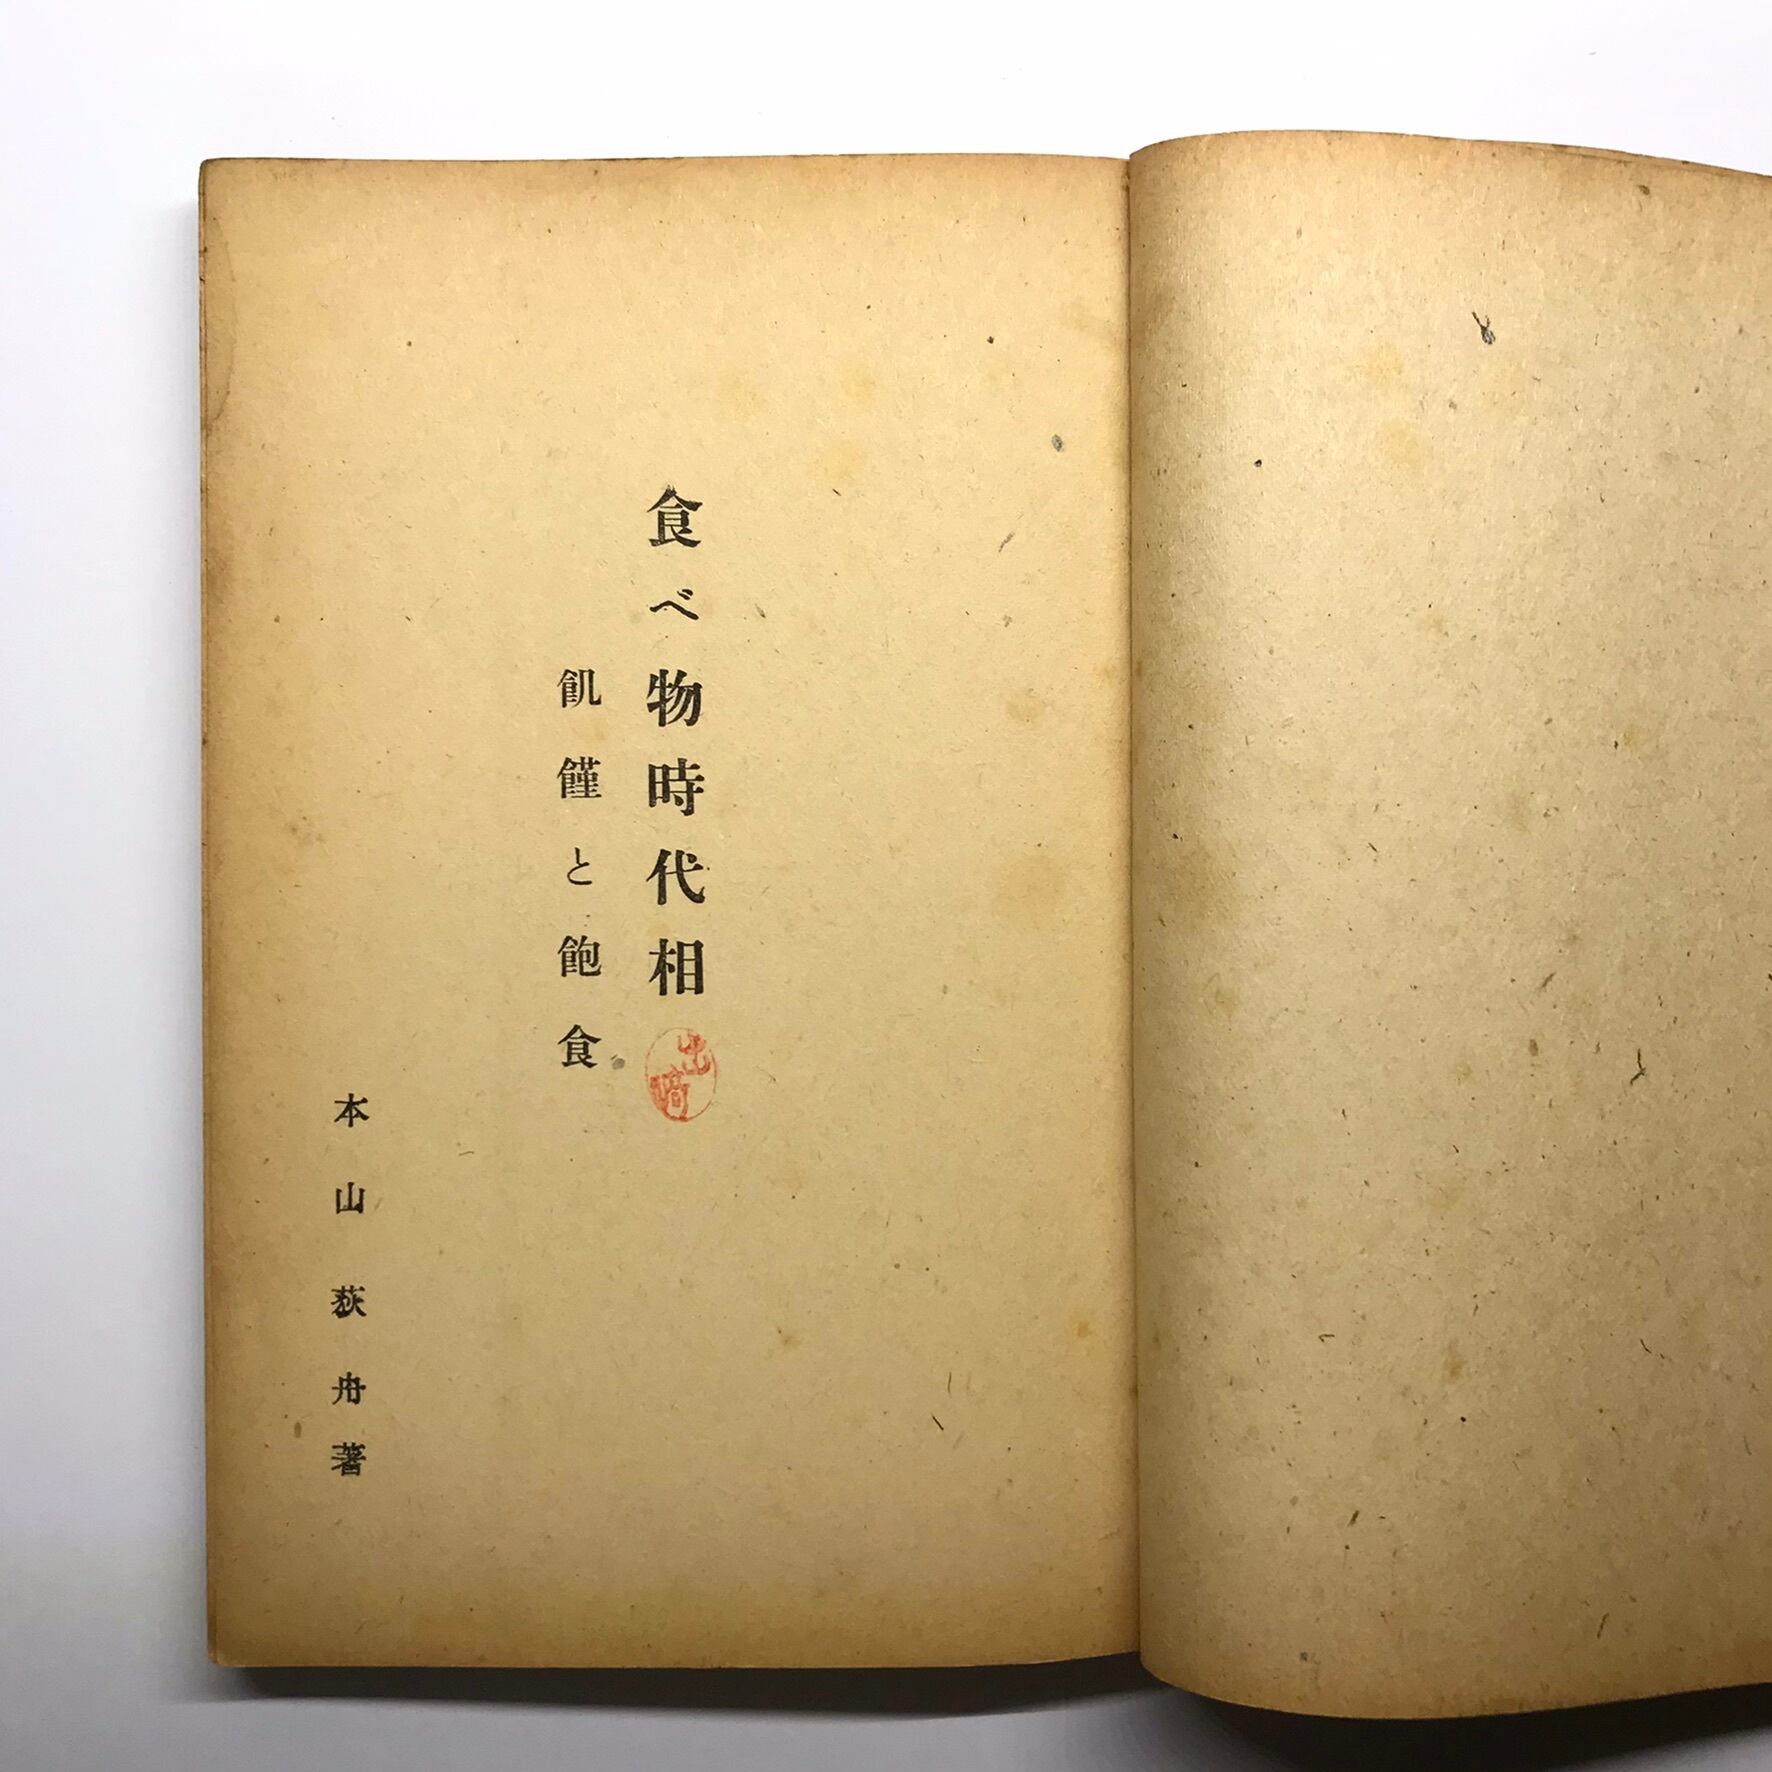 食べ物時代相
飢饉と飽食
本山荻舟著
出崎